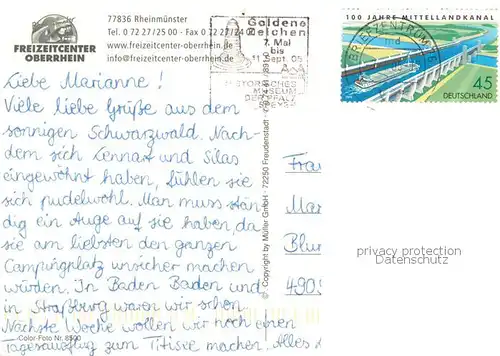 77836 Rheinmünster
Tel. 0 72 27/25 00 - Fax 0 72 27/24 0
www.freizeitcenter-oberrhein.de
info@freizeitcenter-oberrhein.de
FREIZEITCENTER
OBERRHEIN
Goldene
Zeichen
7. Mai
bis
11. Sept. 05
HISTORISCHES
MUSEUM
DER PFALZ
SPEYER
BRIEFZENTRUM
100 JAHRE MITTELLANDKANAL
45
DEUTSCHLAND
Liebe Marianne!
Viele liebe Grüße aus dem
sonnigen Schwarzwald. Nach-
dem sich Lennart und Silas
eingewöhnt haben, fühlen sie
sich pudelwohl. Man muss stän-
dig ein Auge auf sie haben, da
sie am liebsten den ganzen
Campingplatz unsicher machen
würden. In Baden Baden und
in Straßberg waren wir schon.
Nächste Woche wollen wir noch einen
Tagesausflug zum Titisee machen. Alles
© Copyright by Müller GmbH · 72250 Freudenstadt
Frau
Mar
Blu
4909
privacy protection
Datenschutz
Color-Foto Nr. 8500